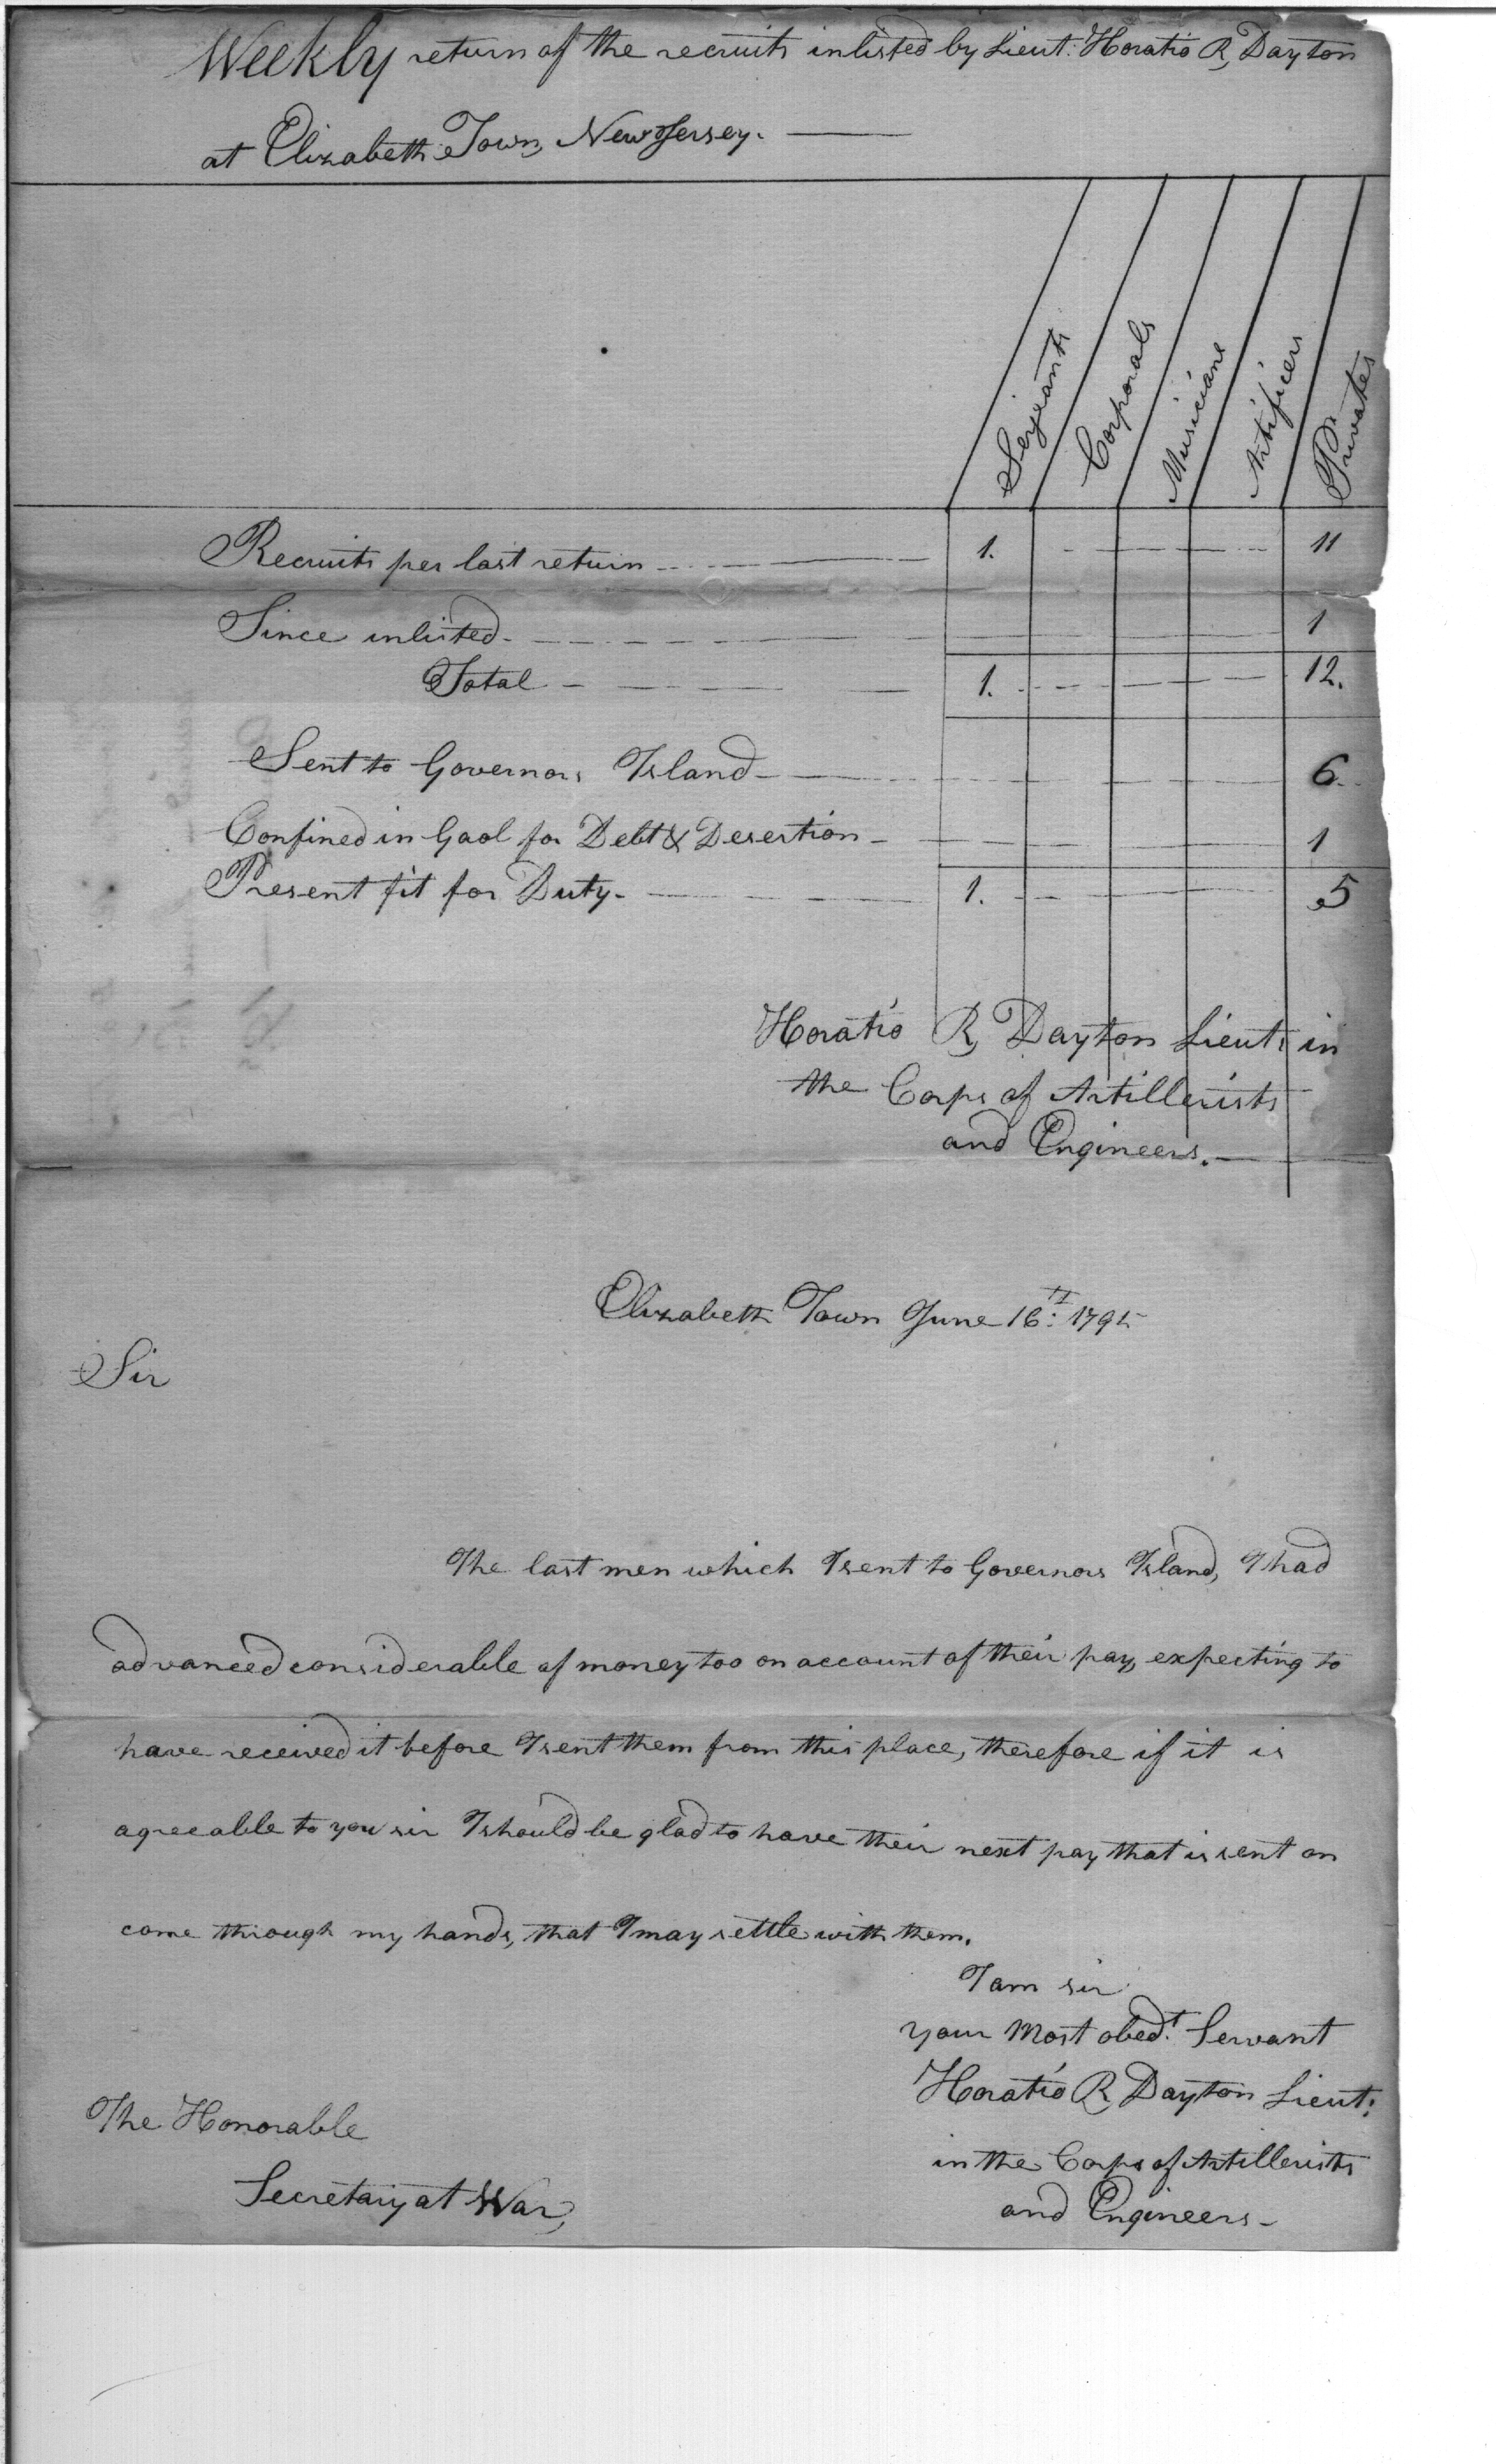 Weekly return of the recruits inlisted by Lieut: Horatio R, Dayton
at Elizabeth Town, New Jersey. —
Serjeants Corporals Musicians Artificers Privates
Recruits per last return 1. 11
Since inlisted 1
Total 1. 12.
Sent to Governors Island 6.
Confined in Gaol for Debt & Desertion 1
Present fit for Duty. 1. 5
Horatio R, Dayton Lieut: in
the Corps of Artillerists
and Engineers. —
Elizabeth Town June 16:th 1795
Sir
The last men which I sent to Governors Island, I had
advanced considerable of money too on account of their pay, expecting to
have received it before I sent them from this place, therefore if it is
agreeable to you sir I should be glad to have their next pay that is sent on
come through my hands, that I may settle with them.
I am sir
your Most obed.t Servant
Horatio R, Dayton Lieut:
in the Corps of Artillerists
and Engineers -
The Honorable
Secretary at War,